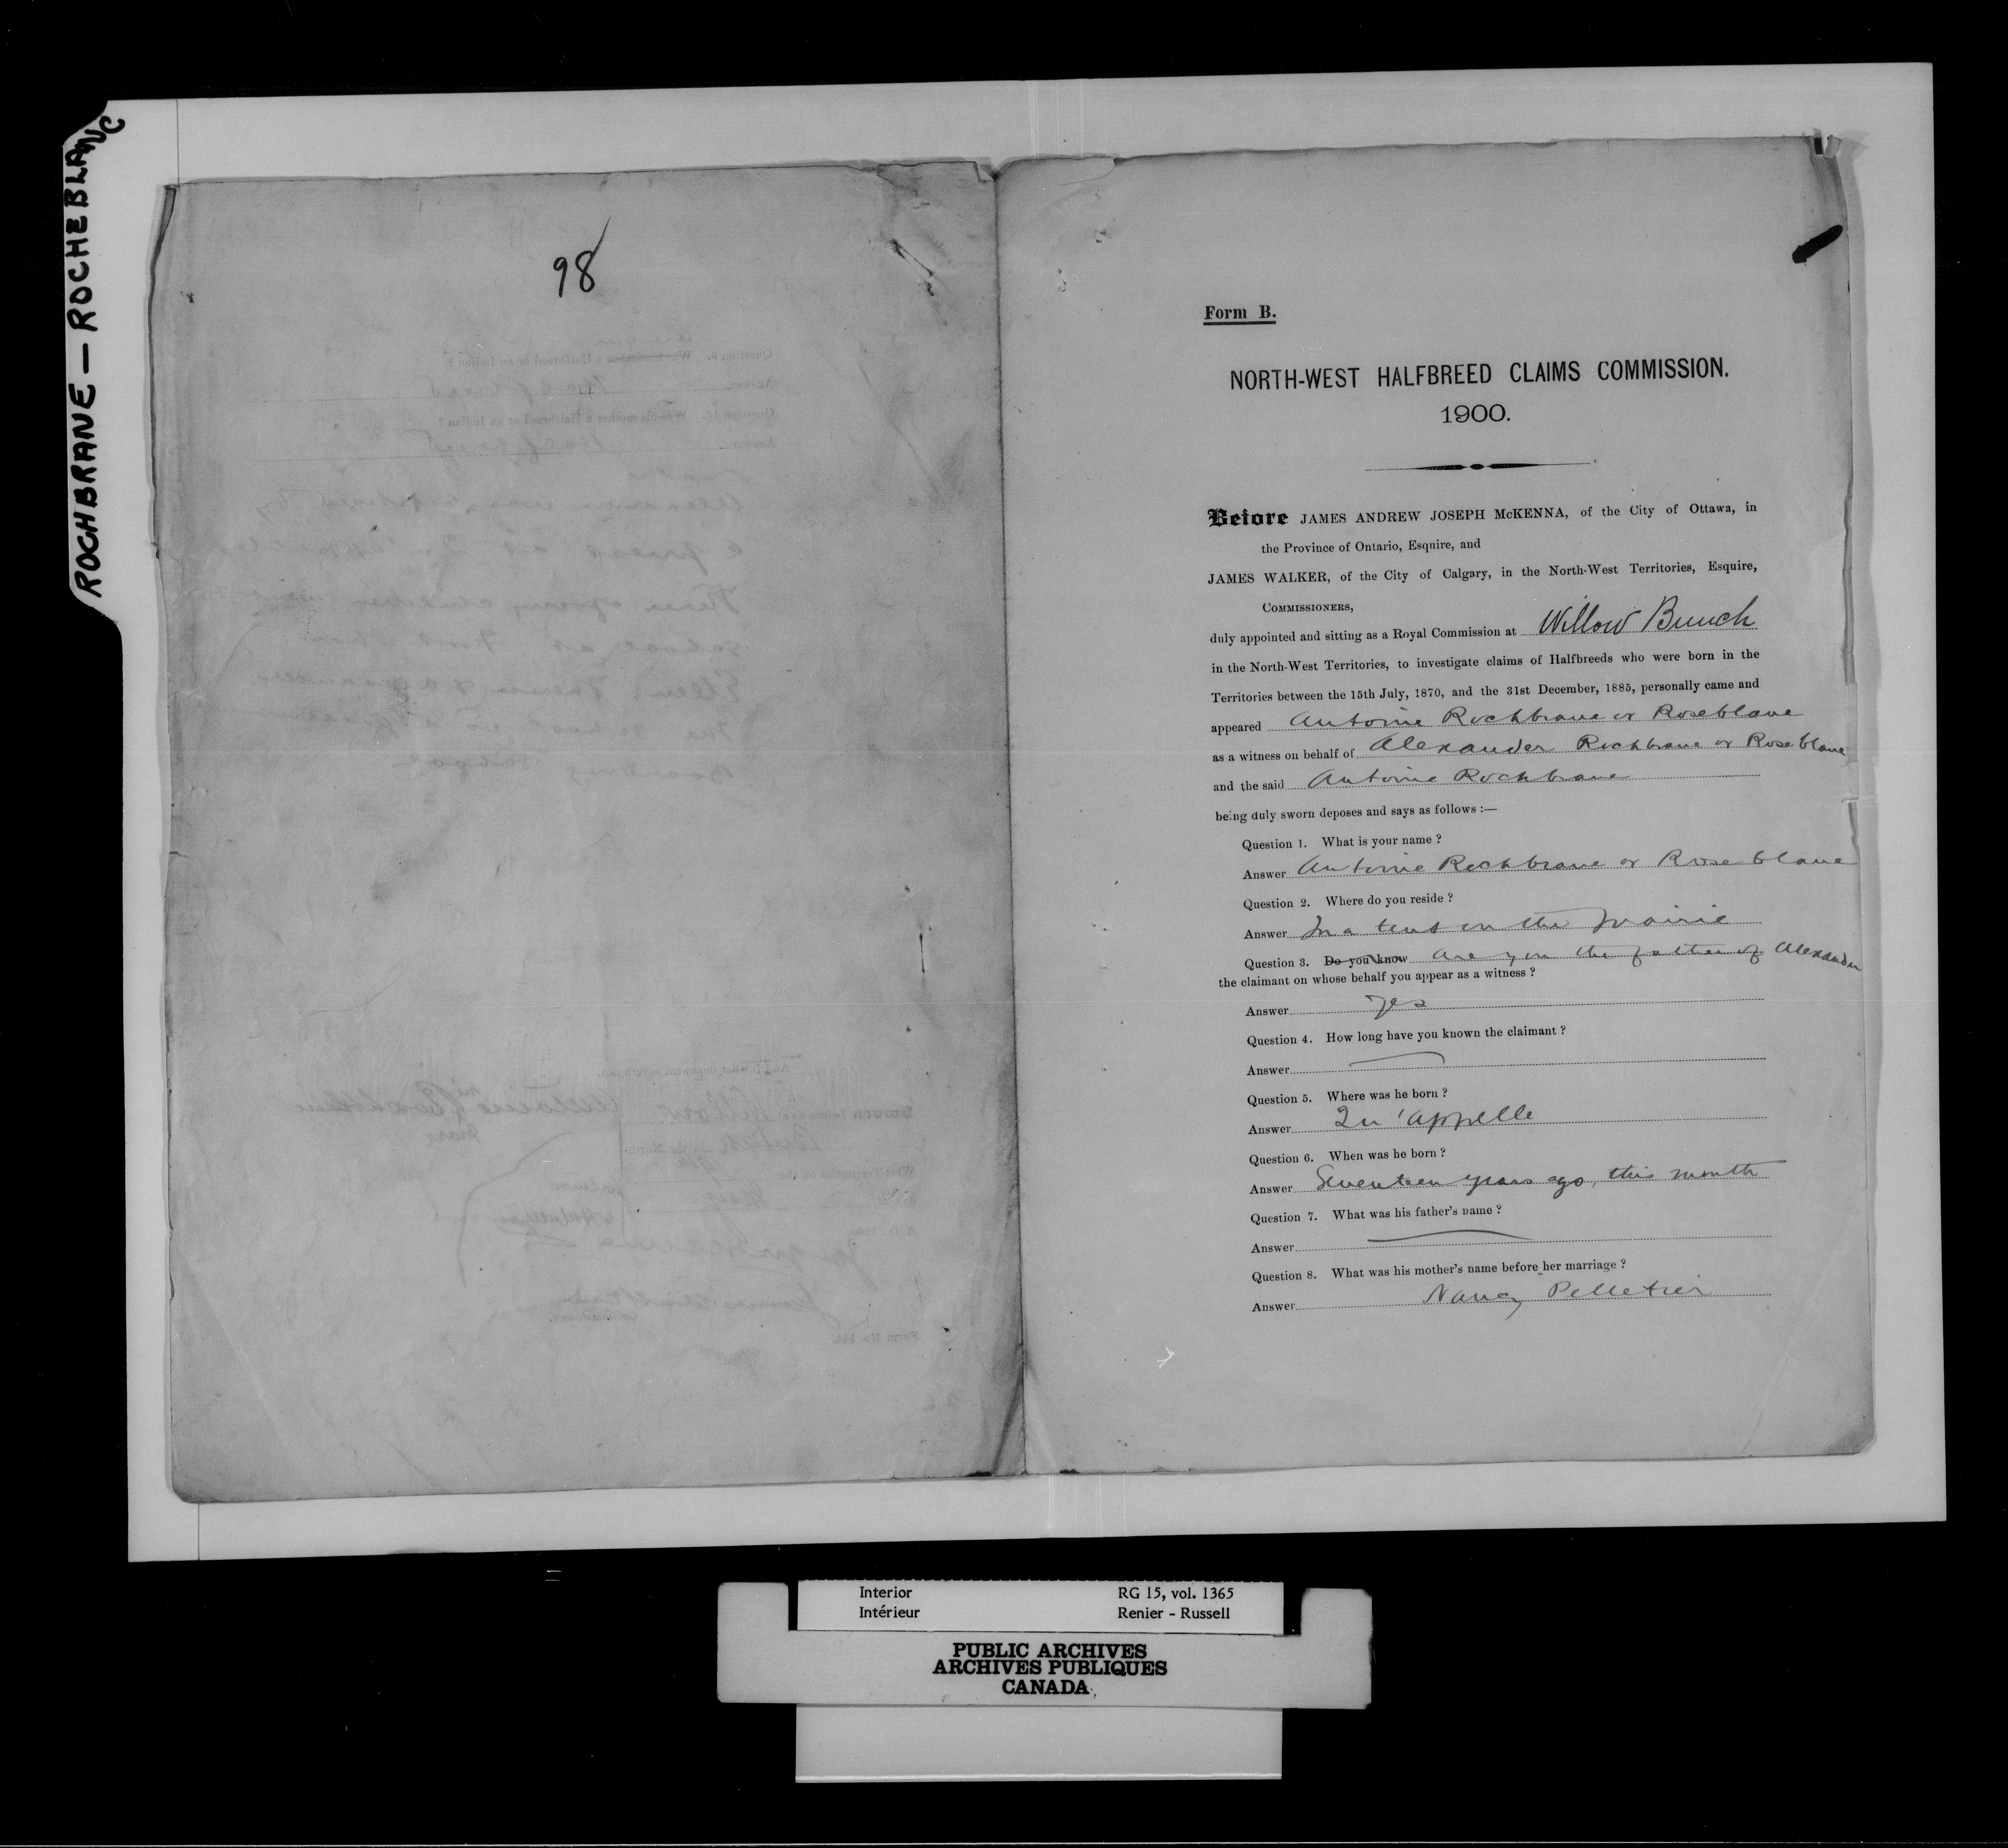 ROCHBRANE — ROCHEBLANC
98
Form B.
NORTH-WEST HALFBREED CLAIMS COMMISSION.
1900.
Before JAMES ANDREW JOSEPH McKENNA, of the City of Ottawa, in
the Province of Ontario, Esquire, and
JAMES WALKER, of the City of Calgary, in the North-West Territories, Esquire,
COMMISSIONERS,
duly appointed and sitting as a Royal Commission at Willow Bunch
in the North-West Territories, to investigate claims of Halfbreeds who were born in the
Territories between the 15th July, 1870, and the 31st December, 1885, personally came and
appeared Antoine Rochbrane or Roseblane
as a witness on behalf of Alexander Rochbrane or Roseblane
and the said Antoine Rochbrane
being duly sworn deposes and says as follows :—
Question 1. What is your name ?
Answer Antoine Rochbrane or Roseblane
Question 2. Where do you reside ?
Answer In a tent on the prairie
Question 3. Do you know are you the father of Alexander
the claimant on whose behalf you appear as a witness ?
Answer yes
Question 4. How long have you known the claimant ?
Answer
Question 5. Where was he born ?
Answer Qu'appelle
Question 6. When was he born ?
Answer Seventeen years ago, this month
Question 7. What was his father's name ?
Answer
Question 8. What was his mother's name before her marriage ?
Answer Nancy Pelletier
Interior RG 15, vol. 1365
Intérieur Renier - Russell
PUBLIC ARCHIVES
ARCHIVES PUBLIQUES
CANADA